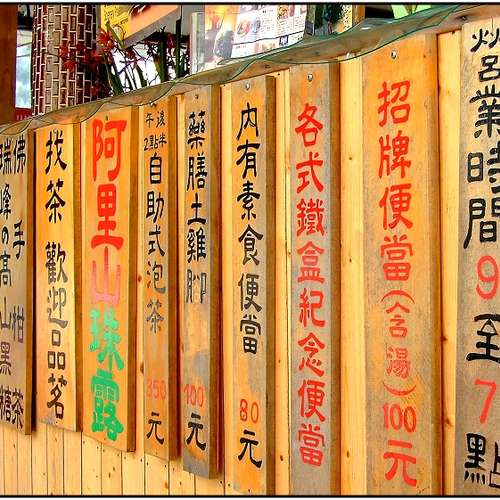 營業時間9至7點
招牌便當(含湯)100元
各式鐵盒紀念便當
內有素食便當80元
藥膳土雞腳100元
午後2點半
自助式泡茶350元
阿里山珠露
找茶 歡迎品茗
佛手柑茶
瑞峰の高山黑糖